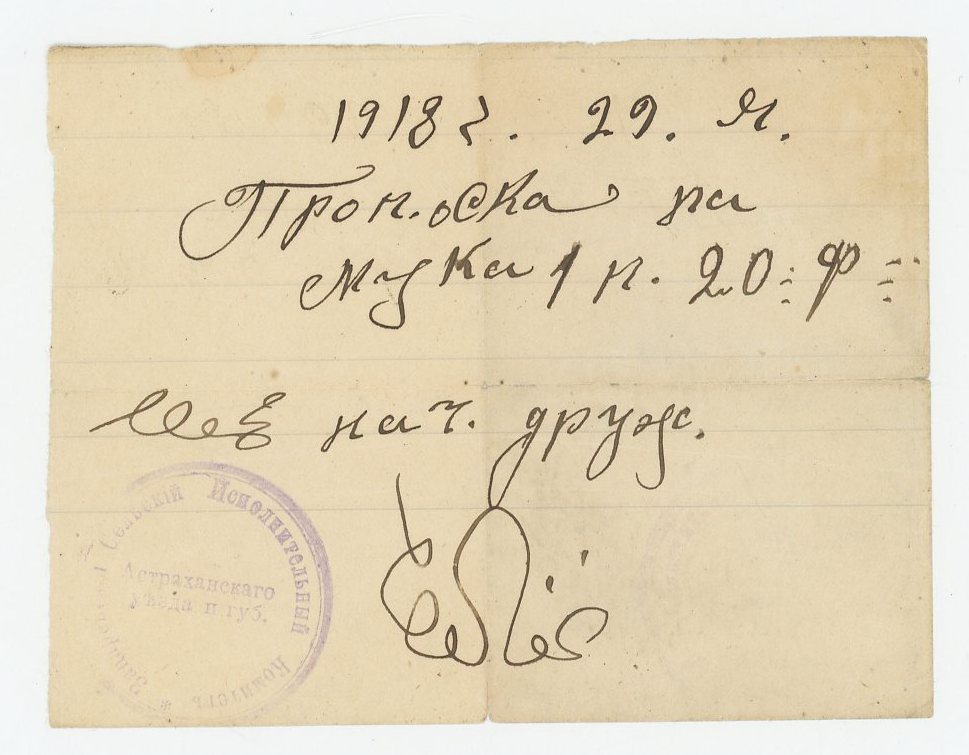 1918 г. 29. Я.
Проп.оска на
мука 1 п. 20 : ф =
нач. друж.
Сельскій Исполнительный Комитетъ
Астраханскаго
уѣзда и губ.